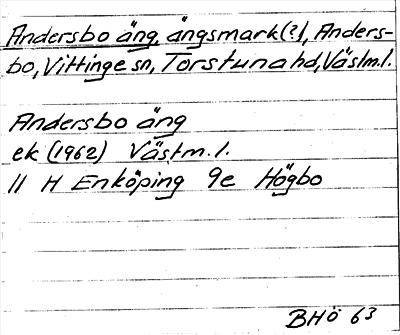 Andersbo äng, ängsmark(?), Anders-
bo, Vittinge sn, Torstuna hd, Västm.l.
Andersbo äng
ek (1962) Västm. l.
11 H Enköping 9e Högbo
BHÖ 63